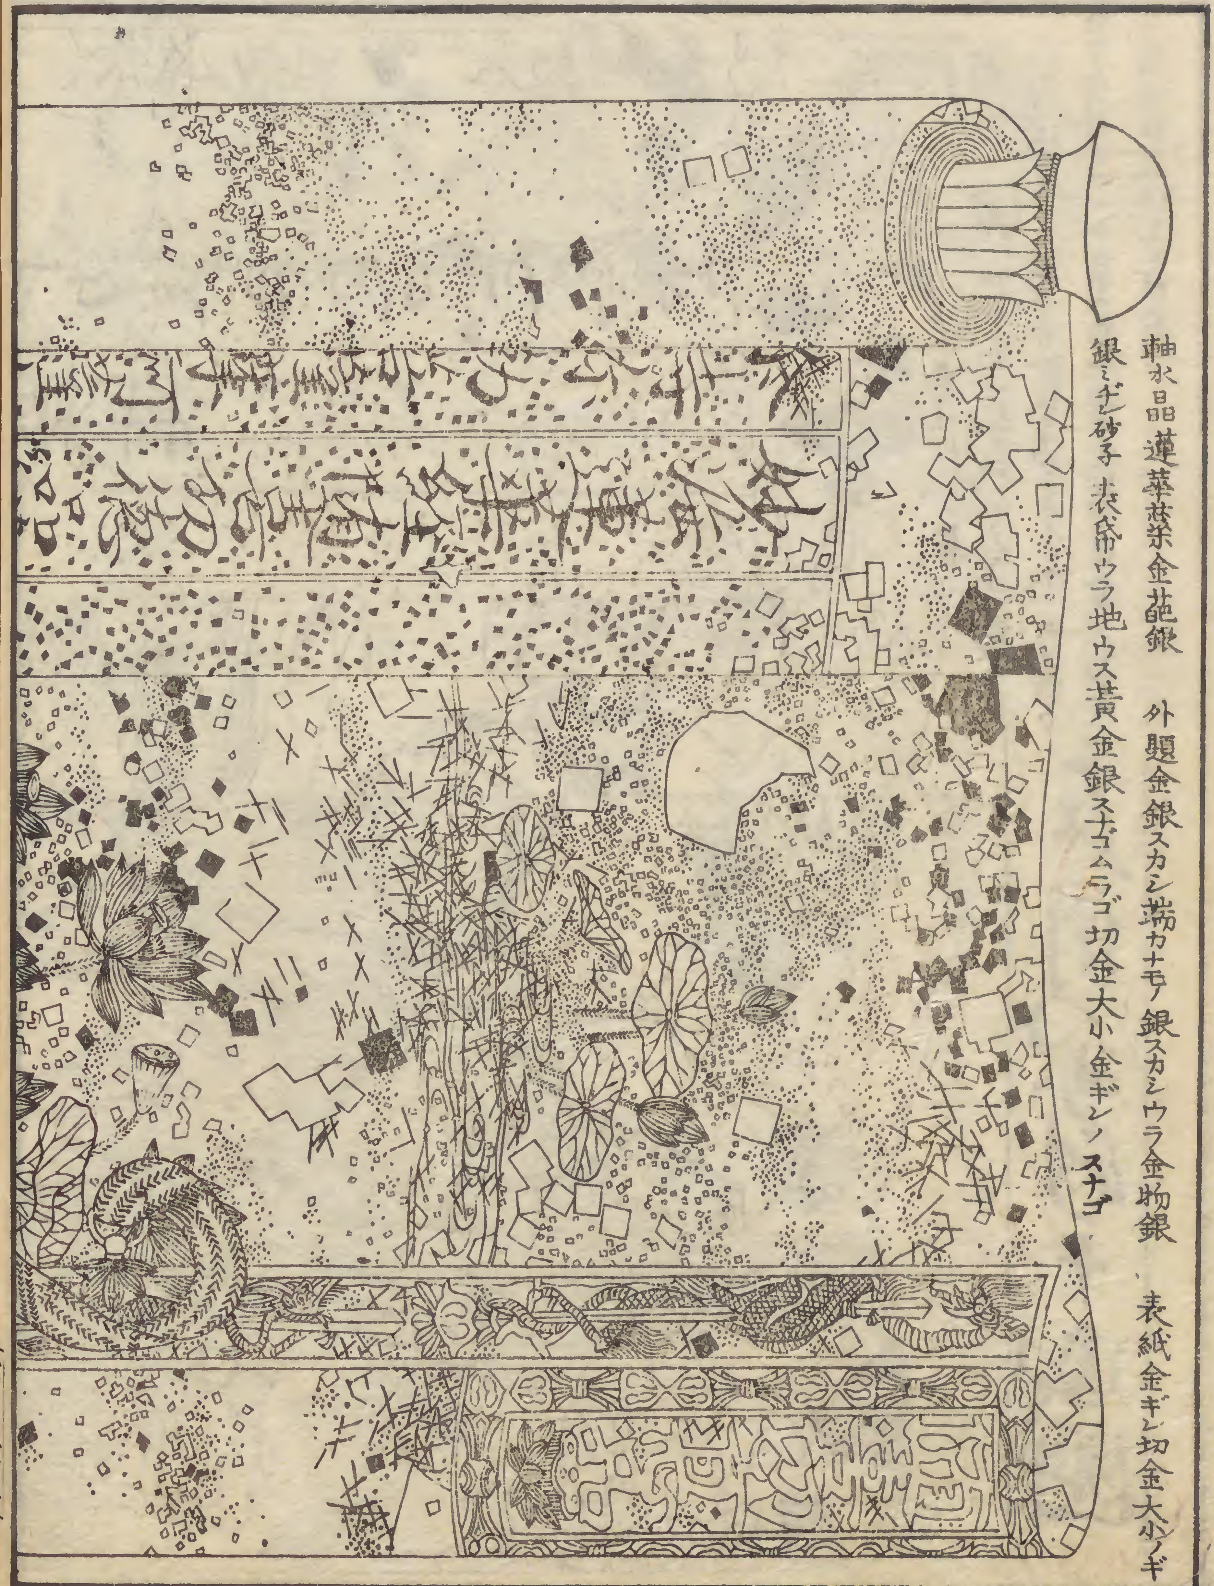 軸水晶蓮華葉金葩銀　外題金銀スカシ端カナモノ銀スカシウラ金物銀　表紙金ギン切金大小ノギ
銀ミヂン砂子　表帋ウラ地ウス黄金銀スナゴムラゴ切金大小金ギンノスナゴ
妙法蓮華經随喜功德品
隨喜功德品